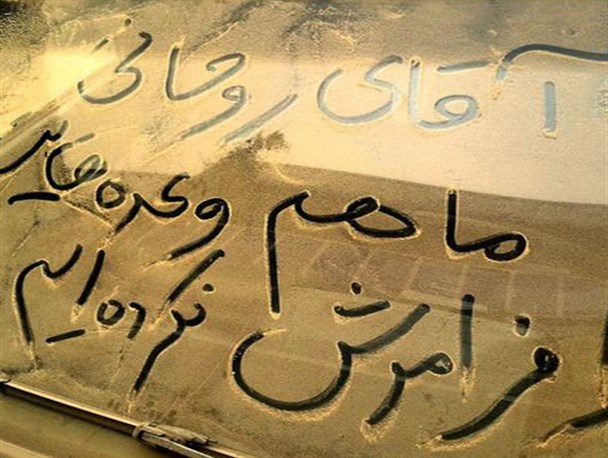 آقای روحانی
ما هم وعده هایت
فراموش نکرده ایم